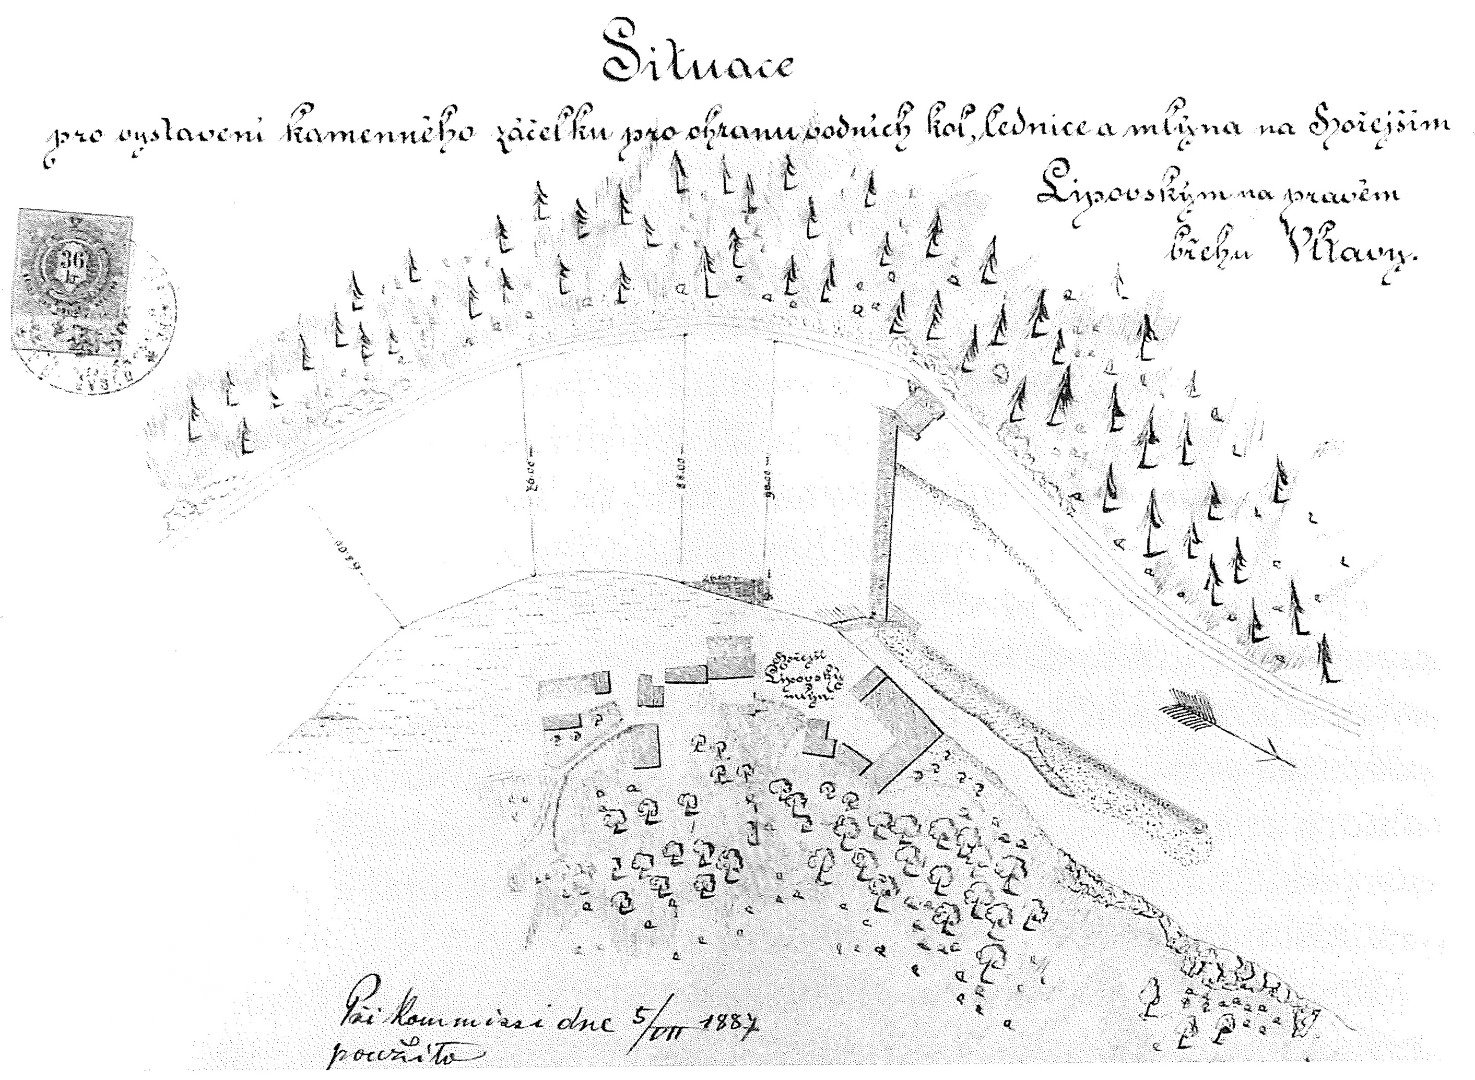 Situace
pro vystavení kamenného záčelku pro ohranu vodních kol, lednice a mlýna na Hořejším
Lipovským na pravém
břehu Vltavy.
36
kr
76.00
88.00
90.00
Hořejší
Lipovský
mlýn.
Při kommissi dne 5/VII 1887
použito